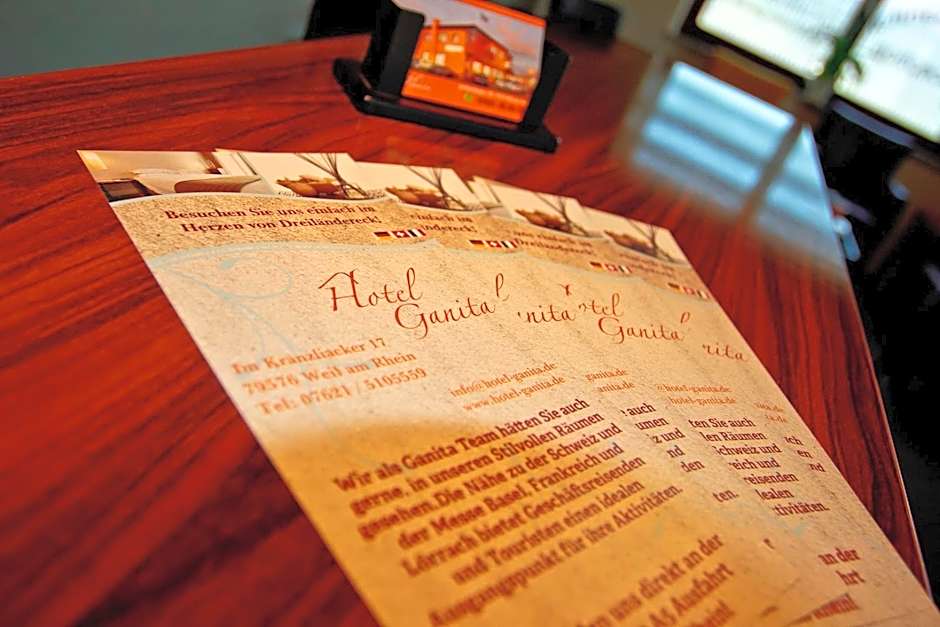 Besuchen Sie uns einfach im
Herzen von Dreiländereck!
einfach im
dereck!
uns einfach im
Dreiländereck!
Hotel
Ganita
nita
tel
Ganita
rita
Im Kränzliacker 17
79576 Weil am Rhein
Tel: 07621 / 5105559
info@hotel-ganita.de
www.hotel-ganita.de
ganita.de
anita.de
@hotel-ganita.de
hotel-ganita.de
Wir als Ganita Team hätten Sie auch
gerne, in unseren Stilvollen Räumen
gesehen. Die Nähe zu der Schweiz und
der Messe Basel, Frankreich und
Lörrach bietet Geschäftsreisenden
und Touristen einen Idealen
Ausgangspunkt für ihre Aktivitäten.
auch
umen
z und
und
den
ten Sie auch
len Räumen
chweiz und
reich und
reisenden
dealen
ten.
ktivitäten.
ich
en
nd
en uns direkt an der
A5 Ausfahrt
an der
hrt